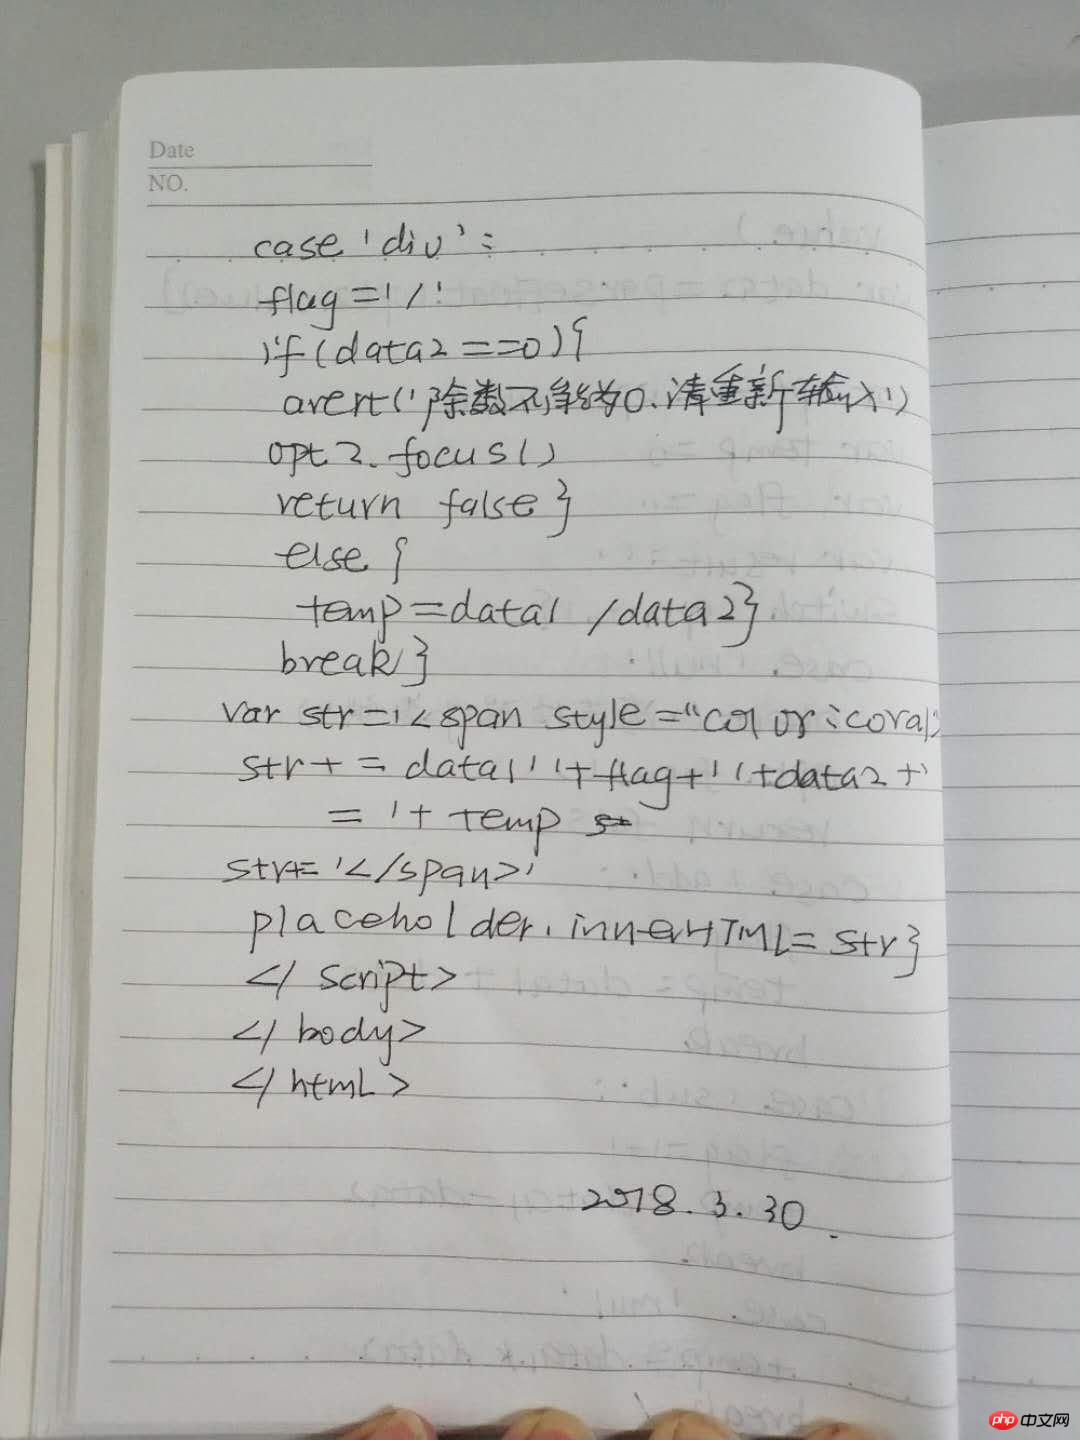 Date
NO.
case 'div':
flag='/'
if(data2==0){
avert('除数不能为0.请重新输入')
opt2.focus()
return false}
else {
temp=data1 /data2}
break}
var str='<span style="color:coral>
str+= data1' '+flag+' '+data2+'
= '+ temp
str+='</span>'
placeholder.innerHTML= str}
</script>
</body>
</html>
2018.3.30.
php 中文网